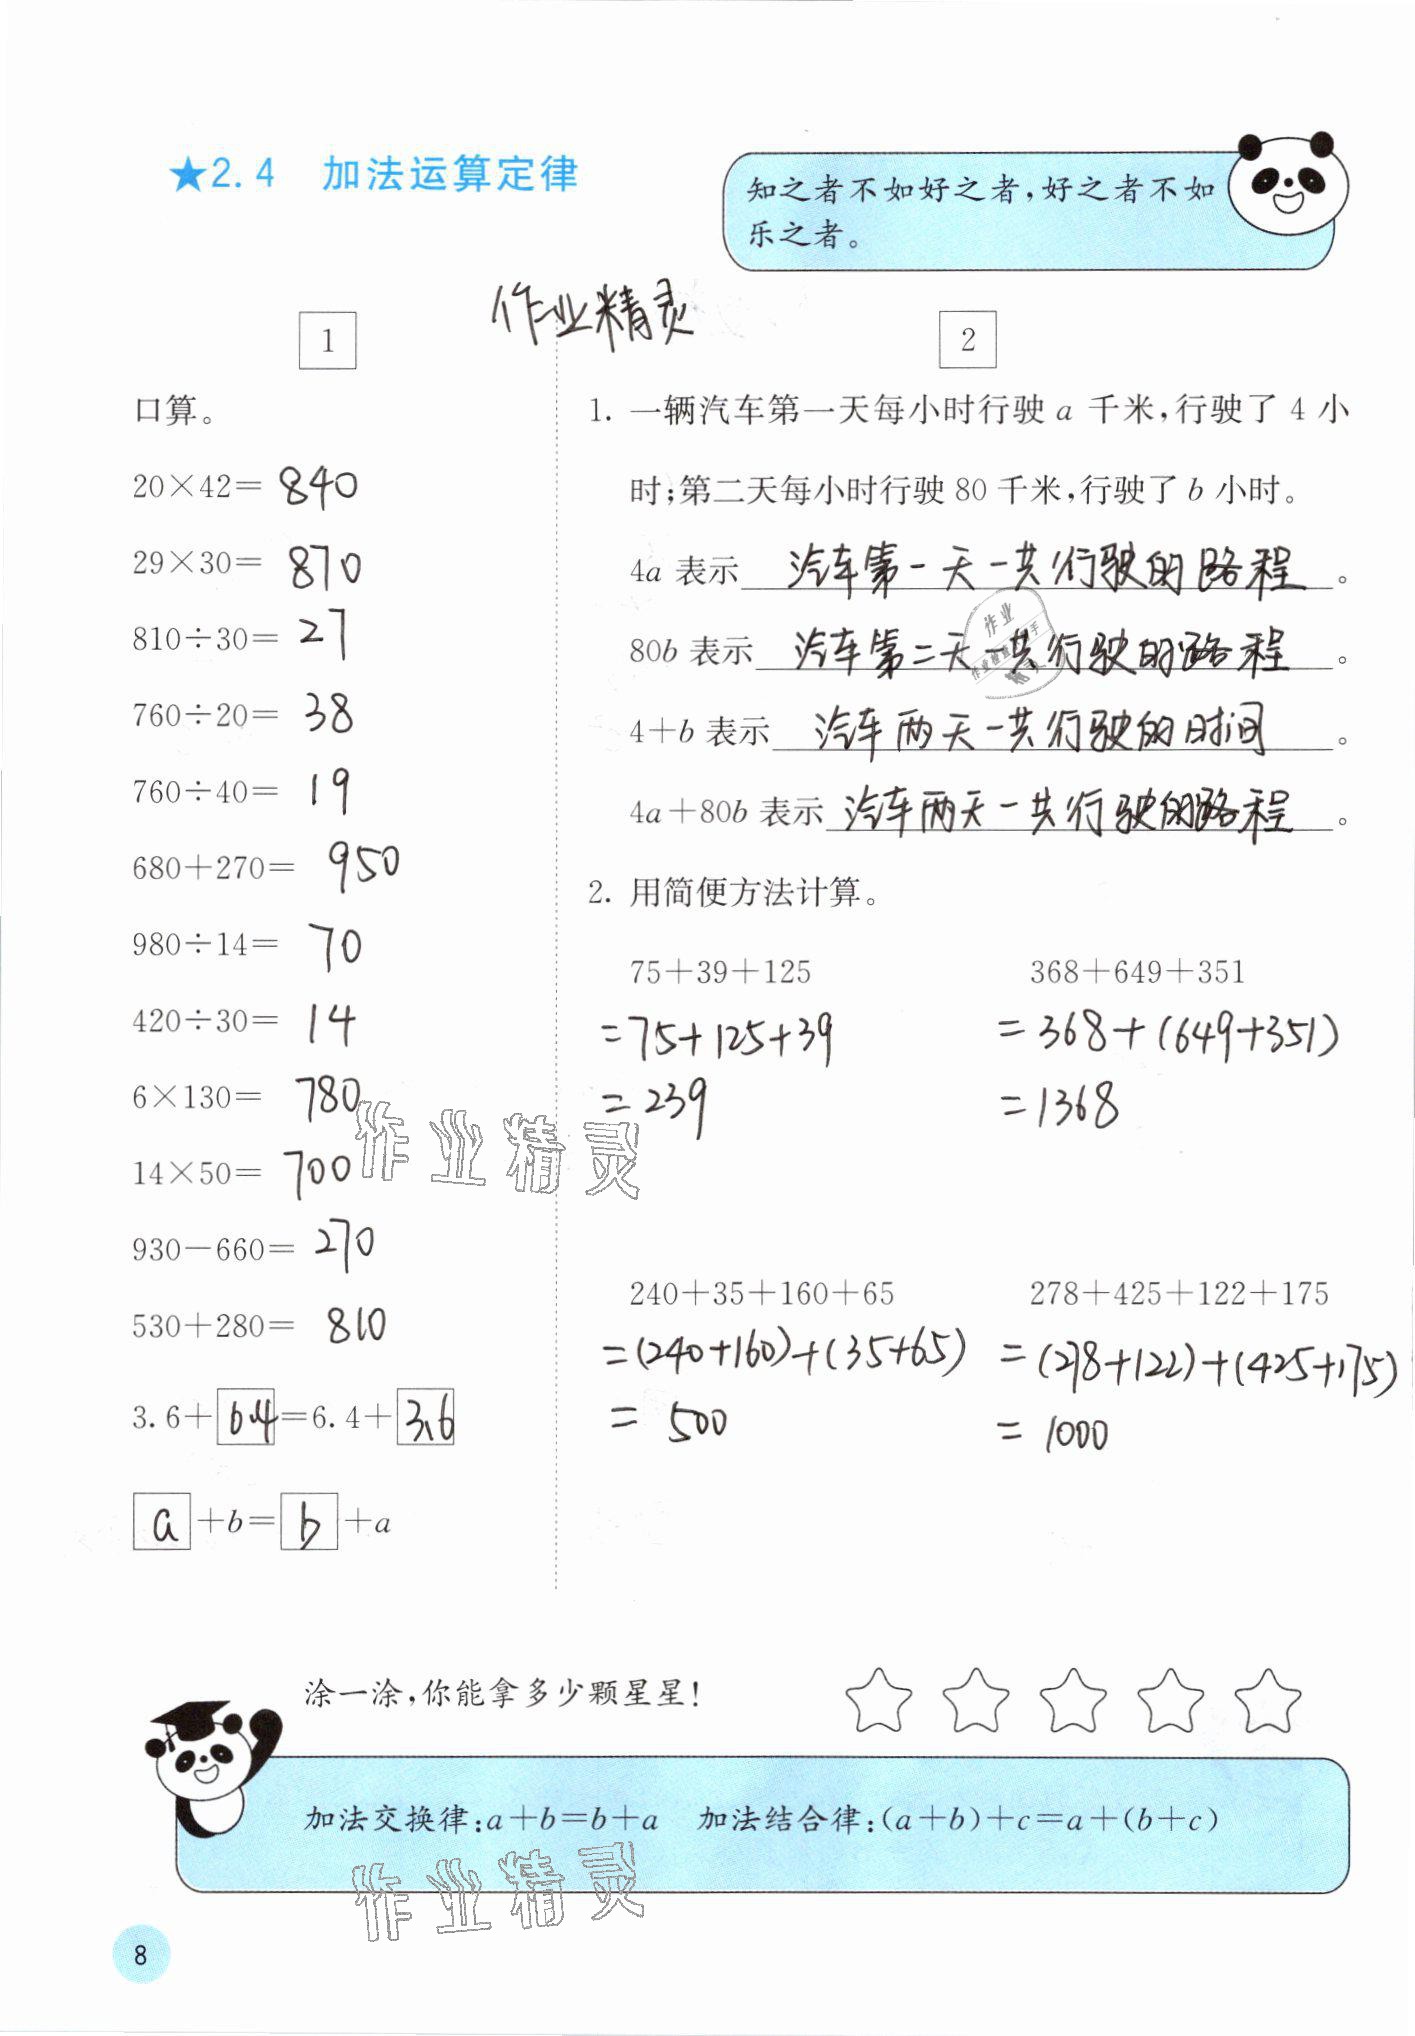 ★2.4 加法运算定律
知之者不如好之者,好之者不如
乐之者。
作业精灵
1
口算。
20×42= 840
29×30= 870
810÷30= 27
760÷20= 38
760÷40= 19
680+270= 950
980÷14= 70
420÷30= 14
6×130= 780
14×50= 700
930-660= 270
530+280= 810
3.6+6.4=6.4+3.6
a+b=b+a
2
1. 一辆汽车第一天每小时行驶 a 千米,行驶了 4 小
时;第二天每小时行驶 80 千米,行驶了 b 小时。
4a 表示 汽车第一天一共行驶的路程。
80b 表示 汽车第二天一共行驶的路程。
4+b 表示 汽车两天一共行驶的时间。
4a+80b 表示 汽车两天一共行驶的路程。
2. 用简便方法计算。
75+39+125
=75+125+39
=239
368+649+351
=368+(649+351)
=1368
240+35+160+65
=(240+160)+(35+65)
=500
278+425+122+175
=(278+122)+(425+175)
=1000
作业精灵
涂一涂,你能拿多少颗星星!
加法交换律:a+b=b+a 加法结合律:(a+b)+c=a+(b+c)
作业精灵
8